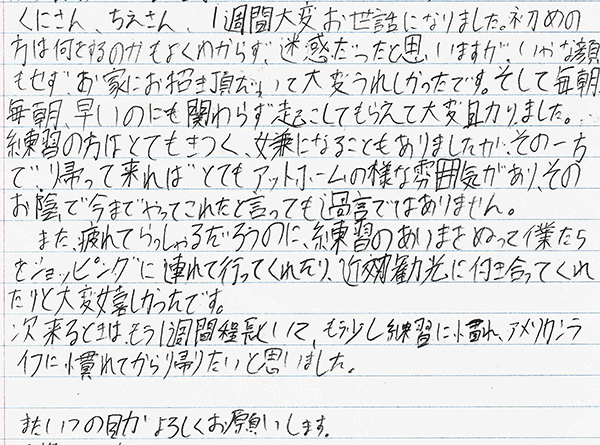 くにさん、ちえさん、1週間大変お世話になりました。初めの
方は何をするのかもよくわからず、迷惑だったと思いますが、いやな顔
もせず、お家にお招き頂だいて大変うれしかったです。そして毎朝
毎朝、早いのにも関わらず起こしてもらえて大変助かりました。
練習の方はとてもきつく、嫌になることもありましたが、その一方
で、帰って来ればとてもアットホームの様な雰囲気があり、その
お陰で今までやってこれたと言っても過言ではありません。
また、疲れてらっしゃるだろうのに、練習のあいまをぬって僕たち
をショッピングに連れて行ってくれたり、近郊観光に付き合ってくれ
たりと大変嬉しかったです。
次来るときは、もう1週間程長くいて、もう少し練習に慣れ、アメリカンラ
イフに慣れてから帰りたいと思いました。
またいつの日かよろしくお願いします。